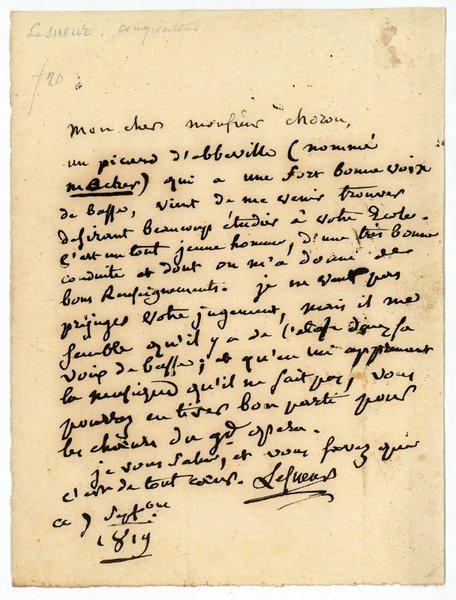 Lesueur, compositeur
f 20
Mon cher monsieur choron,
un picard d'abbeville (nommé
Macker) qui a une fort bonne voix
de basse, vient de me venir trouver
desirant beaucoup étudier à votre École.
C'est un tout jeune homme, d'une très bonne
conduite et dont on m'a donné de
bons Renseignements. je ne veux pas
préjuger votre jugement, mais il me
semble qu'il y a de l'étofe dans sa
voix de basse; et qu'en lui apprenant
la musique qu'il ne sait pas, vous
pourrez en tirer bon parti pour
les chœurs du gd opera.
je vous salue, et vous savez que
c'est de tout cœur. LeSueur
ce 7 septbre
1819